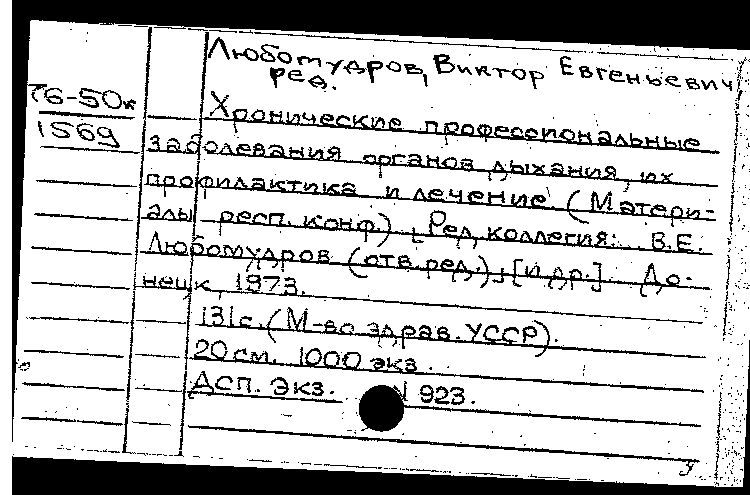 Любомудров, Виктор Евгеньевич,
ред.
76-50к
1569
Хронические профессиональные
заболевания органов дыхания, их
профилактика и лечение. (Матери-
алы респ. конф.) [Ред. коллегия: В.Е.
Любомудров (отв. ред.), [и др.] До-
нецк, 1973.
131с. (М-во здрав. УССР).
20 см. 1000 экз.
ДСП. Экз. N 923.